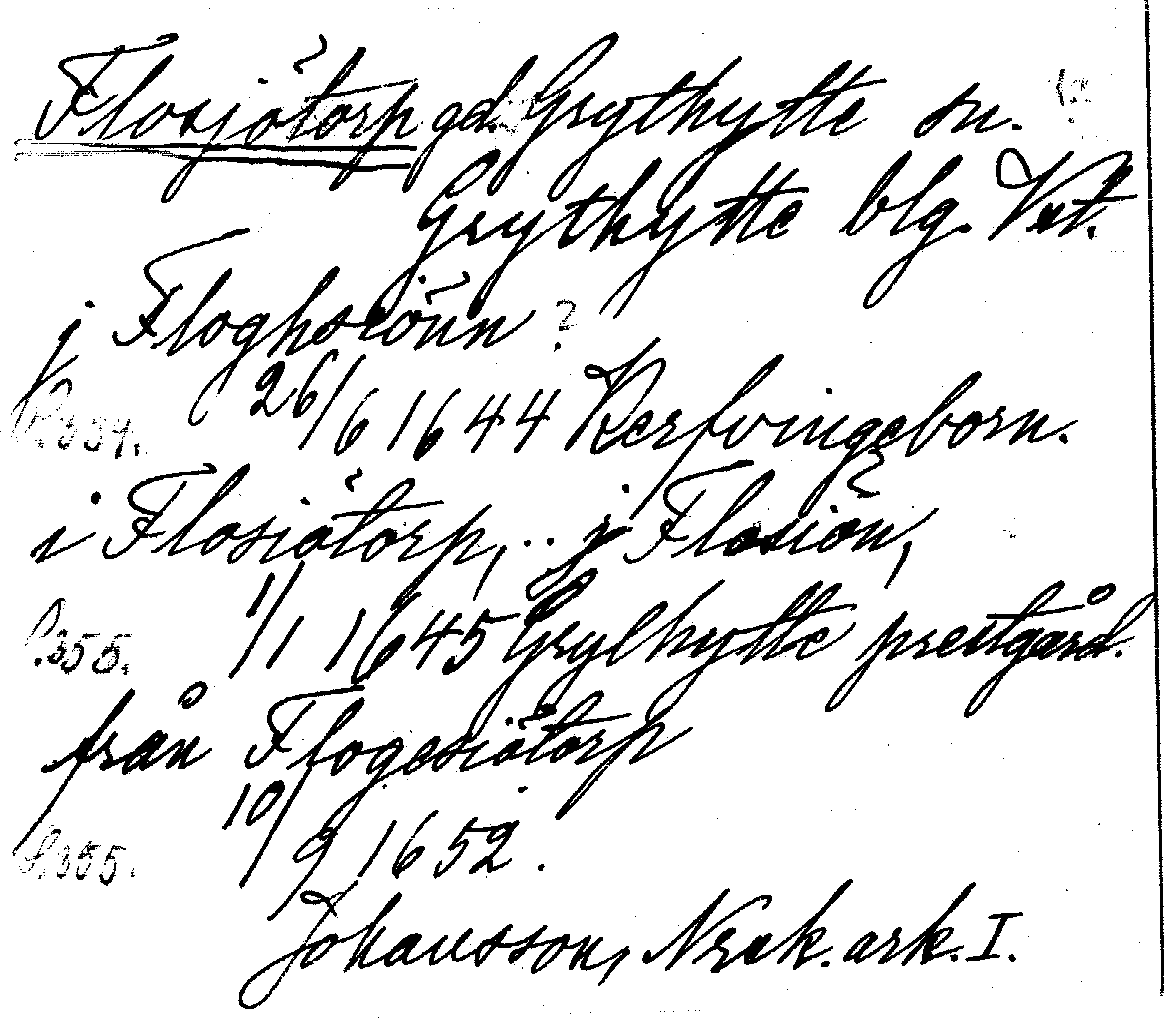 Flosjötorp gd. Grythytte sn.
Grythytte blg. Vstm.
j Floghsiönn ?
S. 334. 26/6 1644 Kerfvingeborn.
i Flosiötorp, .. j Flosiön,
S. 355. 1/1 1645 Grythytte prestgård.
från Flogesiötorp
S. 355. 10/9 1652.
Johansson, Nrak. ark. I.